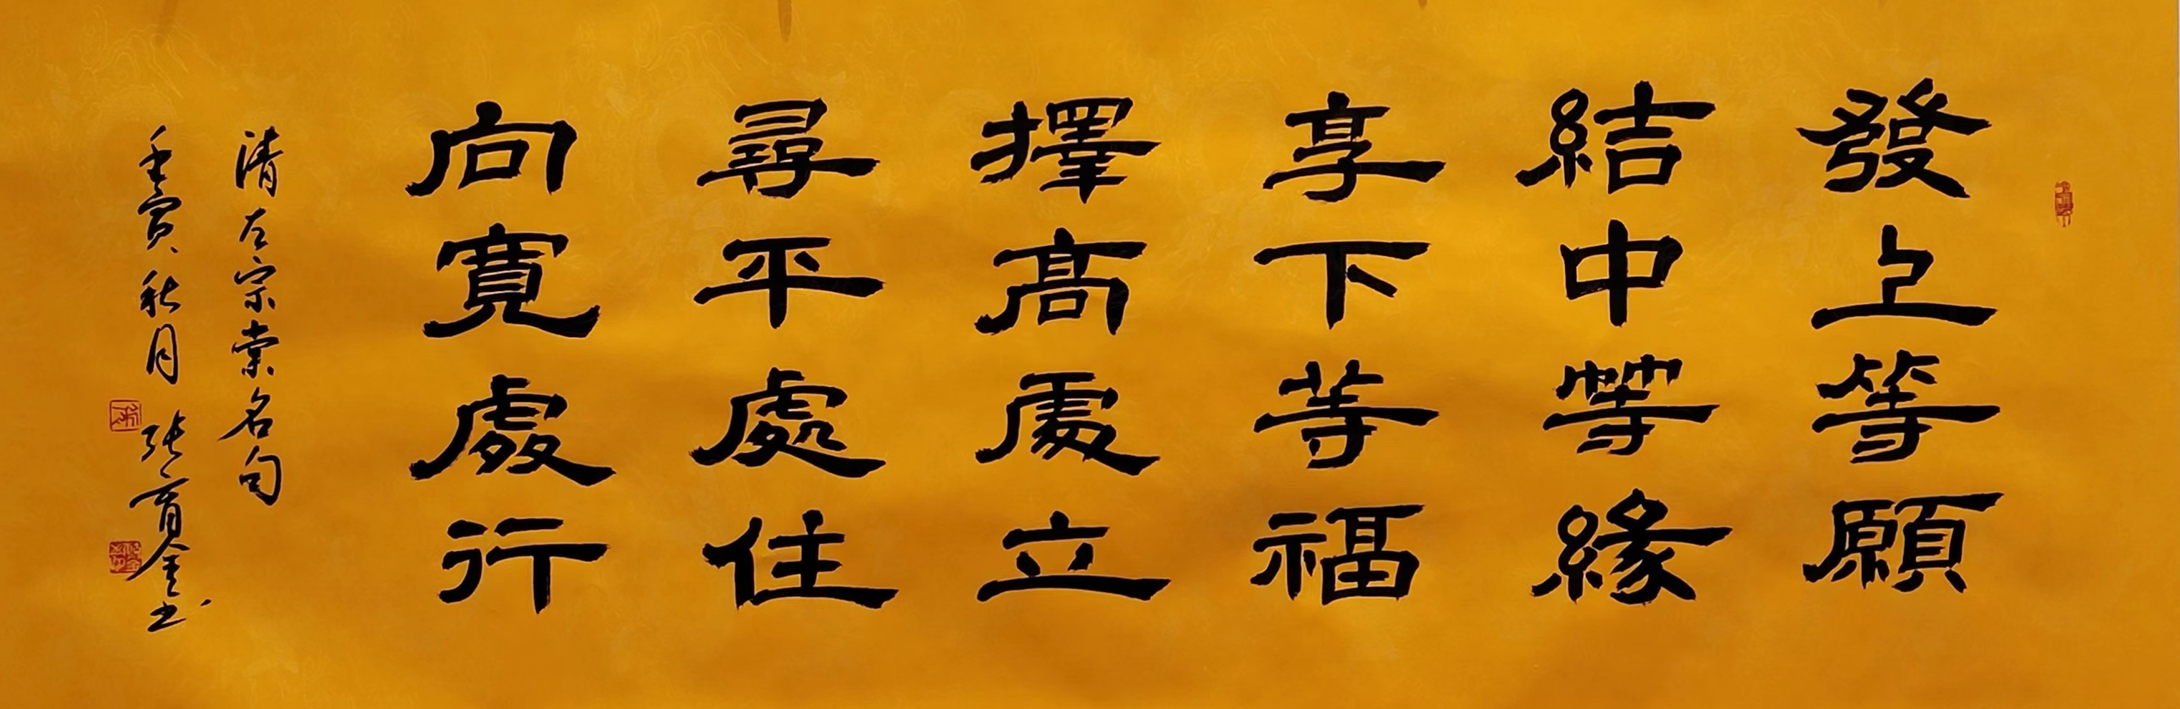 發上等願
結中等緣
享下等福
擇高處立
尋平處住
向寬處行
清左宗棠名句
壬寅秋月張育金书